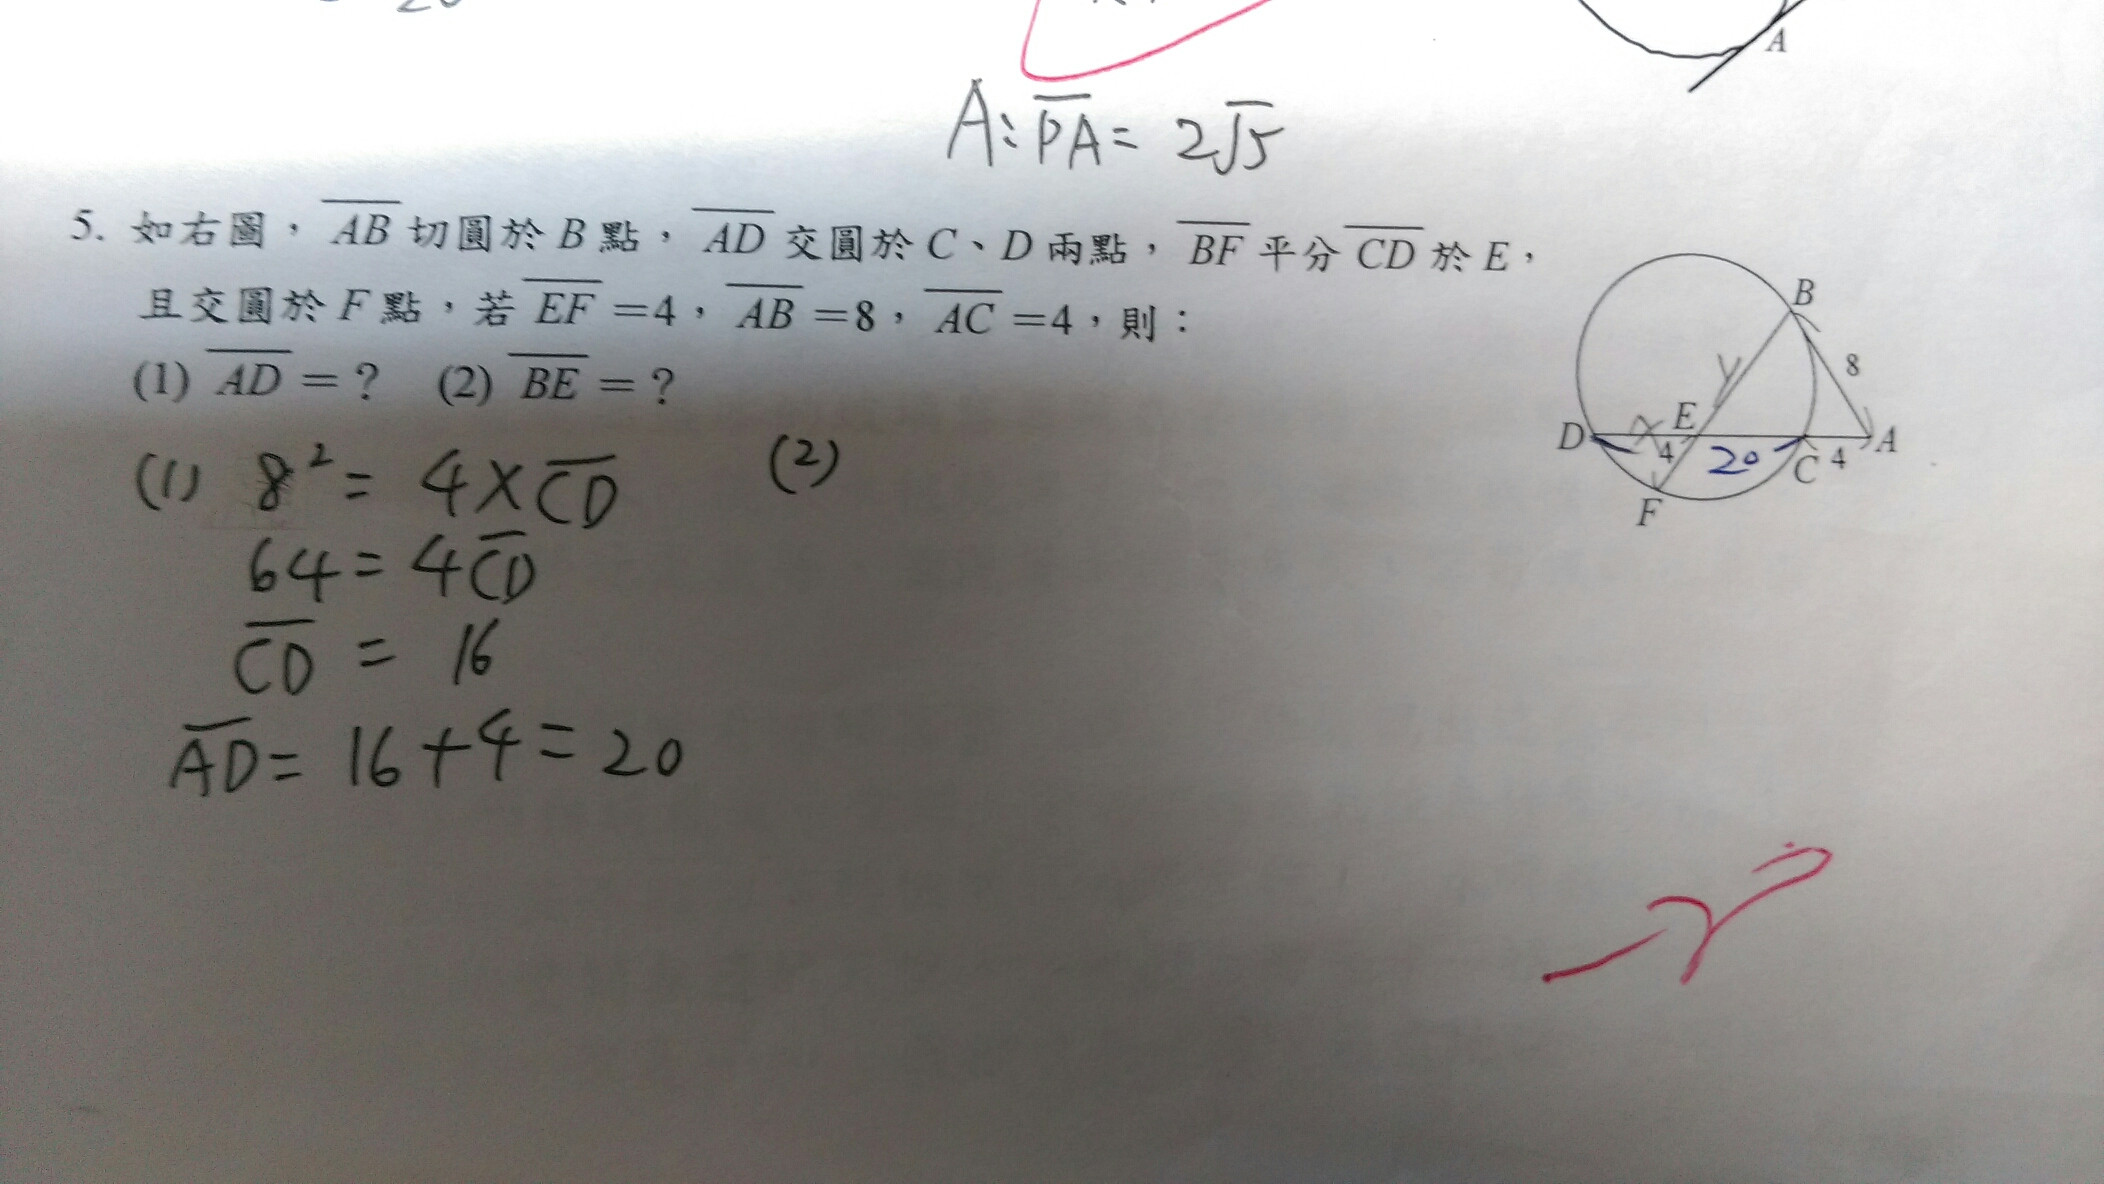 A
A: PA = 2√5
5. 如右圖，AB 切圓於 B 點，AD 交圓於 C、D 兩點，BF 平分 CD 於 E，
且交圓於 F 點，若 EF =4，AB =8，AC =4，則：
(1) AD = ? (2) BE = ?
B
y
8
D x E 4 20 C 4 A
F
(1) 8² = 4×CD (2)
64 = 4CD
CD = 16
AD = 16+4 = 20